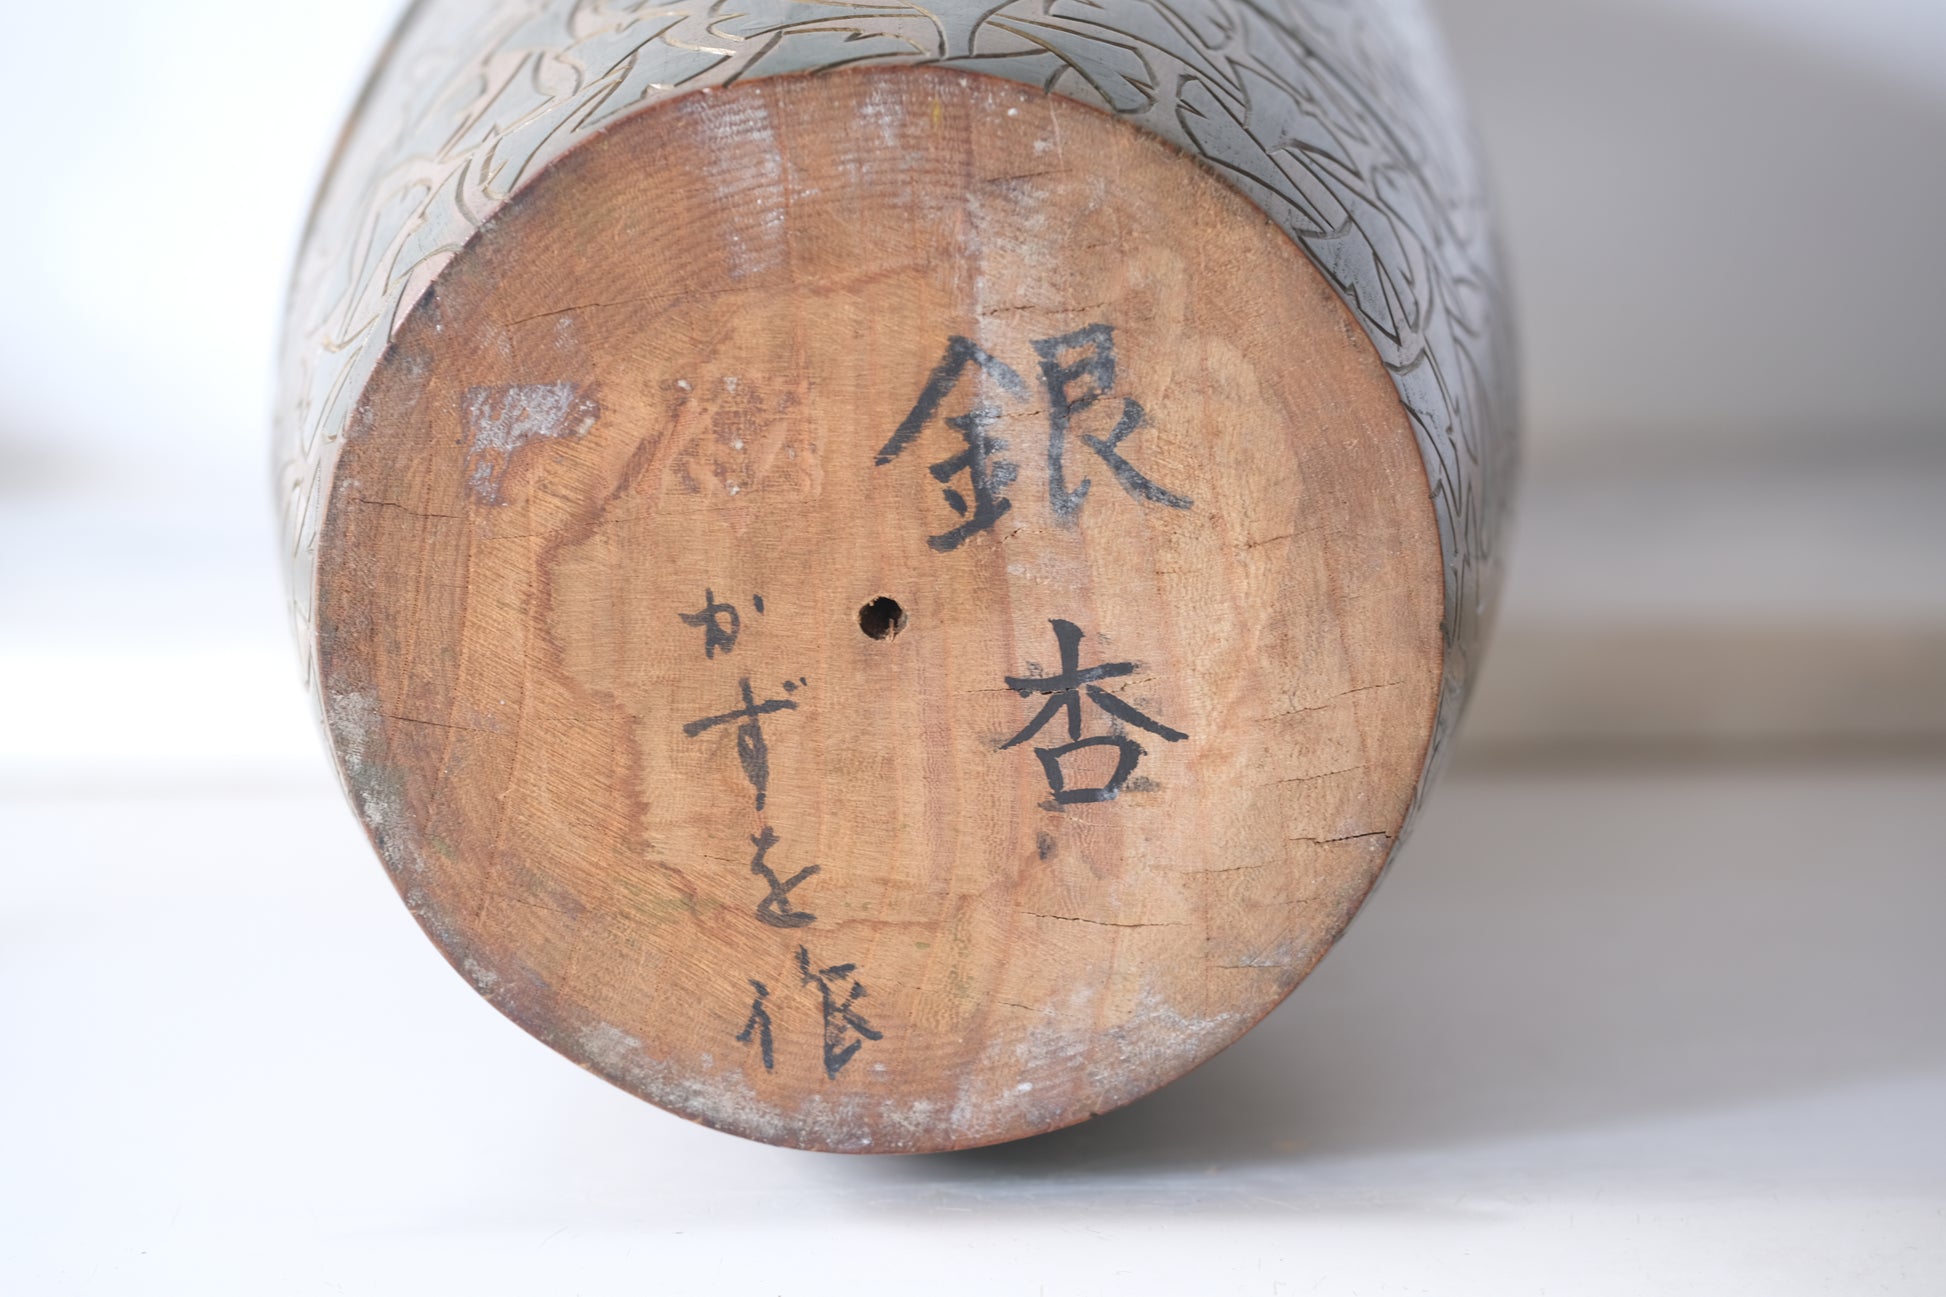 銀杏
かずを作